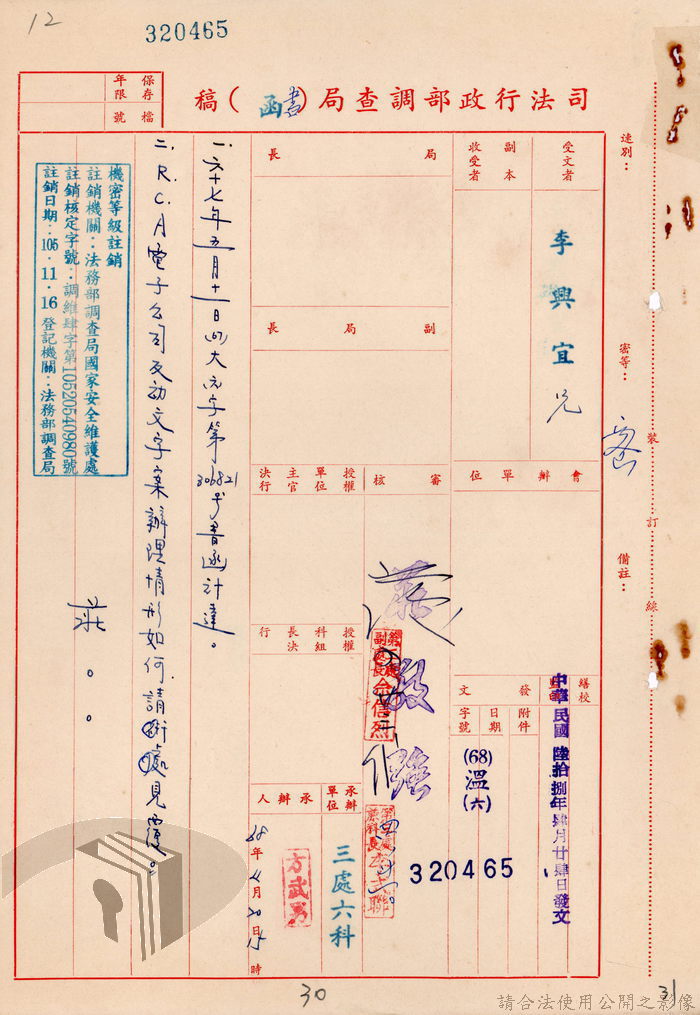 12
320465
司法行政部調查局（書函）稿
保存年限
檔號
速別：
密等：密
備註：
裝訂線
受文者
李興宜兄
副本收受者
局長
副局長
會辦單位
審核
授權單位主官決行
授權科組長決行
繕校
監印
發文
附件
日期
字號
中華民國陸拾捌年肆月廿肆日發文
(68)溫(六)
320465
承辦單位
三處六科
承辦人
方武男
68年4月20日15時
第三處副處長余信烈
一.六十七年五月十一日(67)大元字第306821号書函計達。
二.R.C.A電子公司反動文字案辦理情形如何.請術處見覆。
莊。。
機密等級註銷
註銷機關：法務部調查局國家安全維護處
註銷核定字號：調維肆字第10520540980號
註銷日期：105.11.16 登記機關：法務部調查局
30
31
請合法使用公開之影像